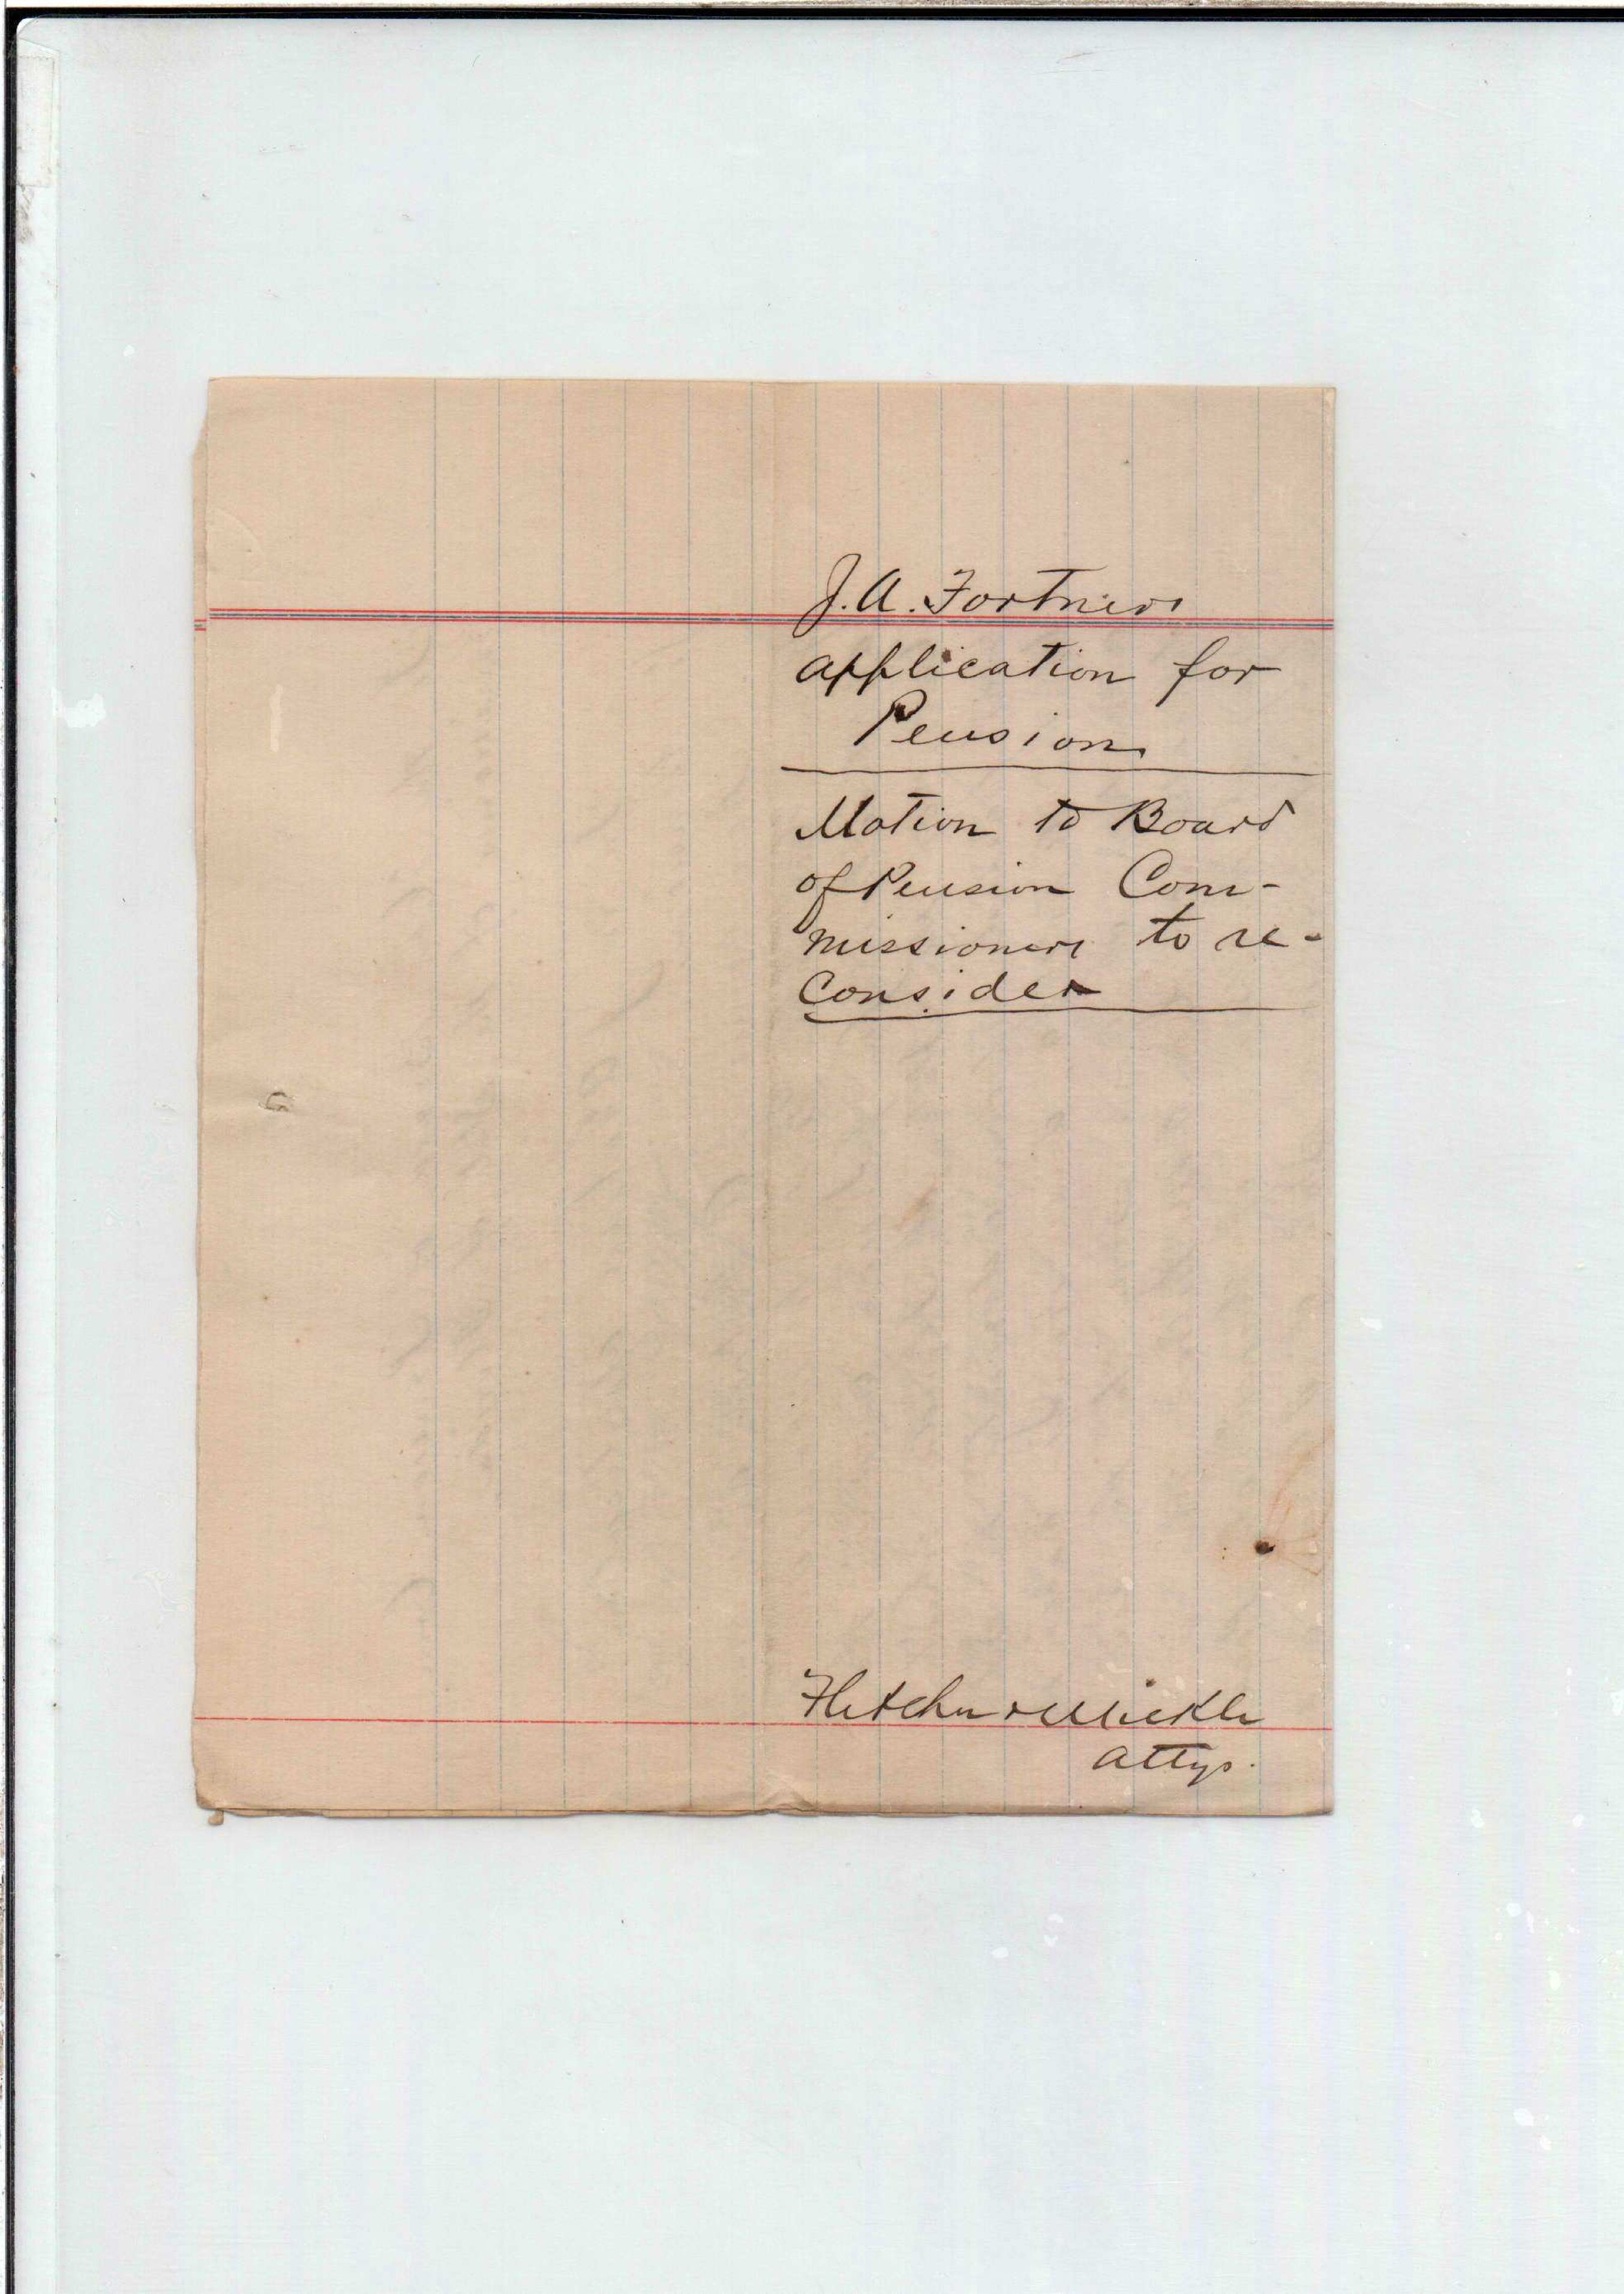 J. A. Fortners
application for
Pension
Motion to Board
of Pension Com-
missioners to re-
consider
Fletcher & Mickle
attys.